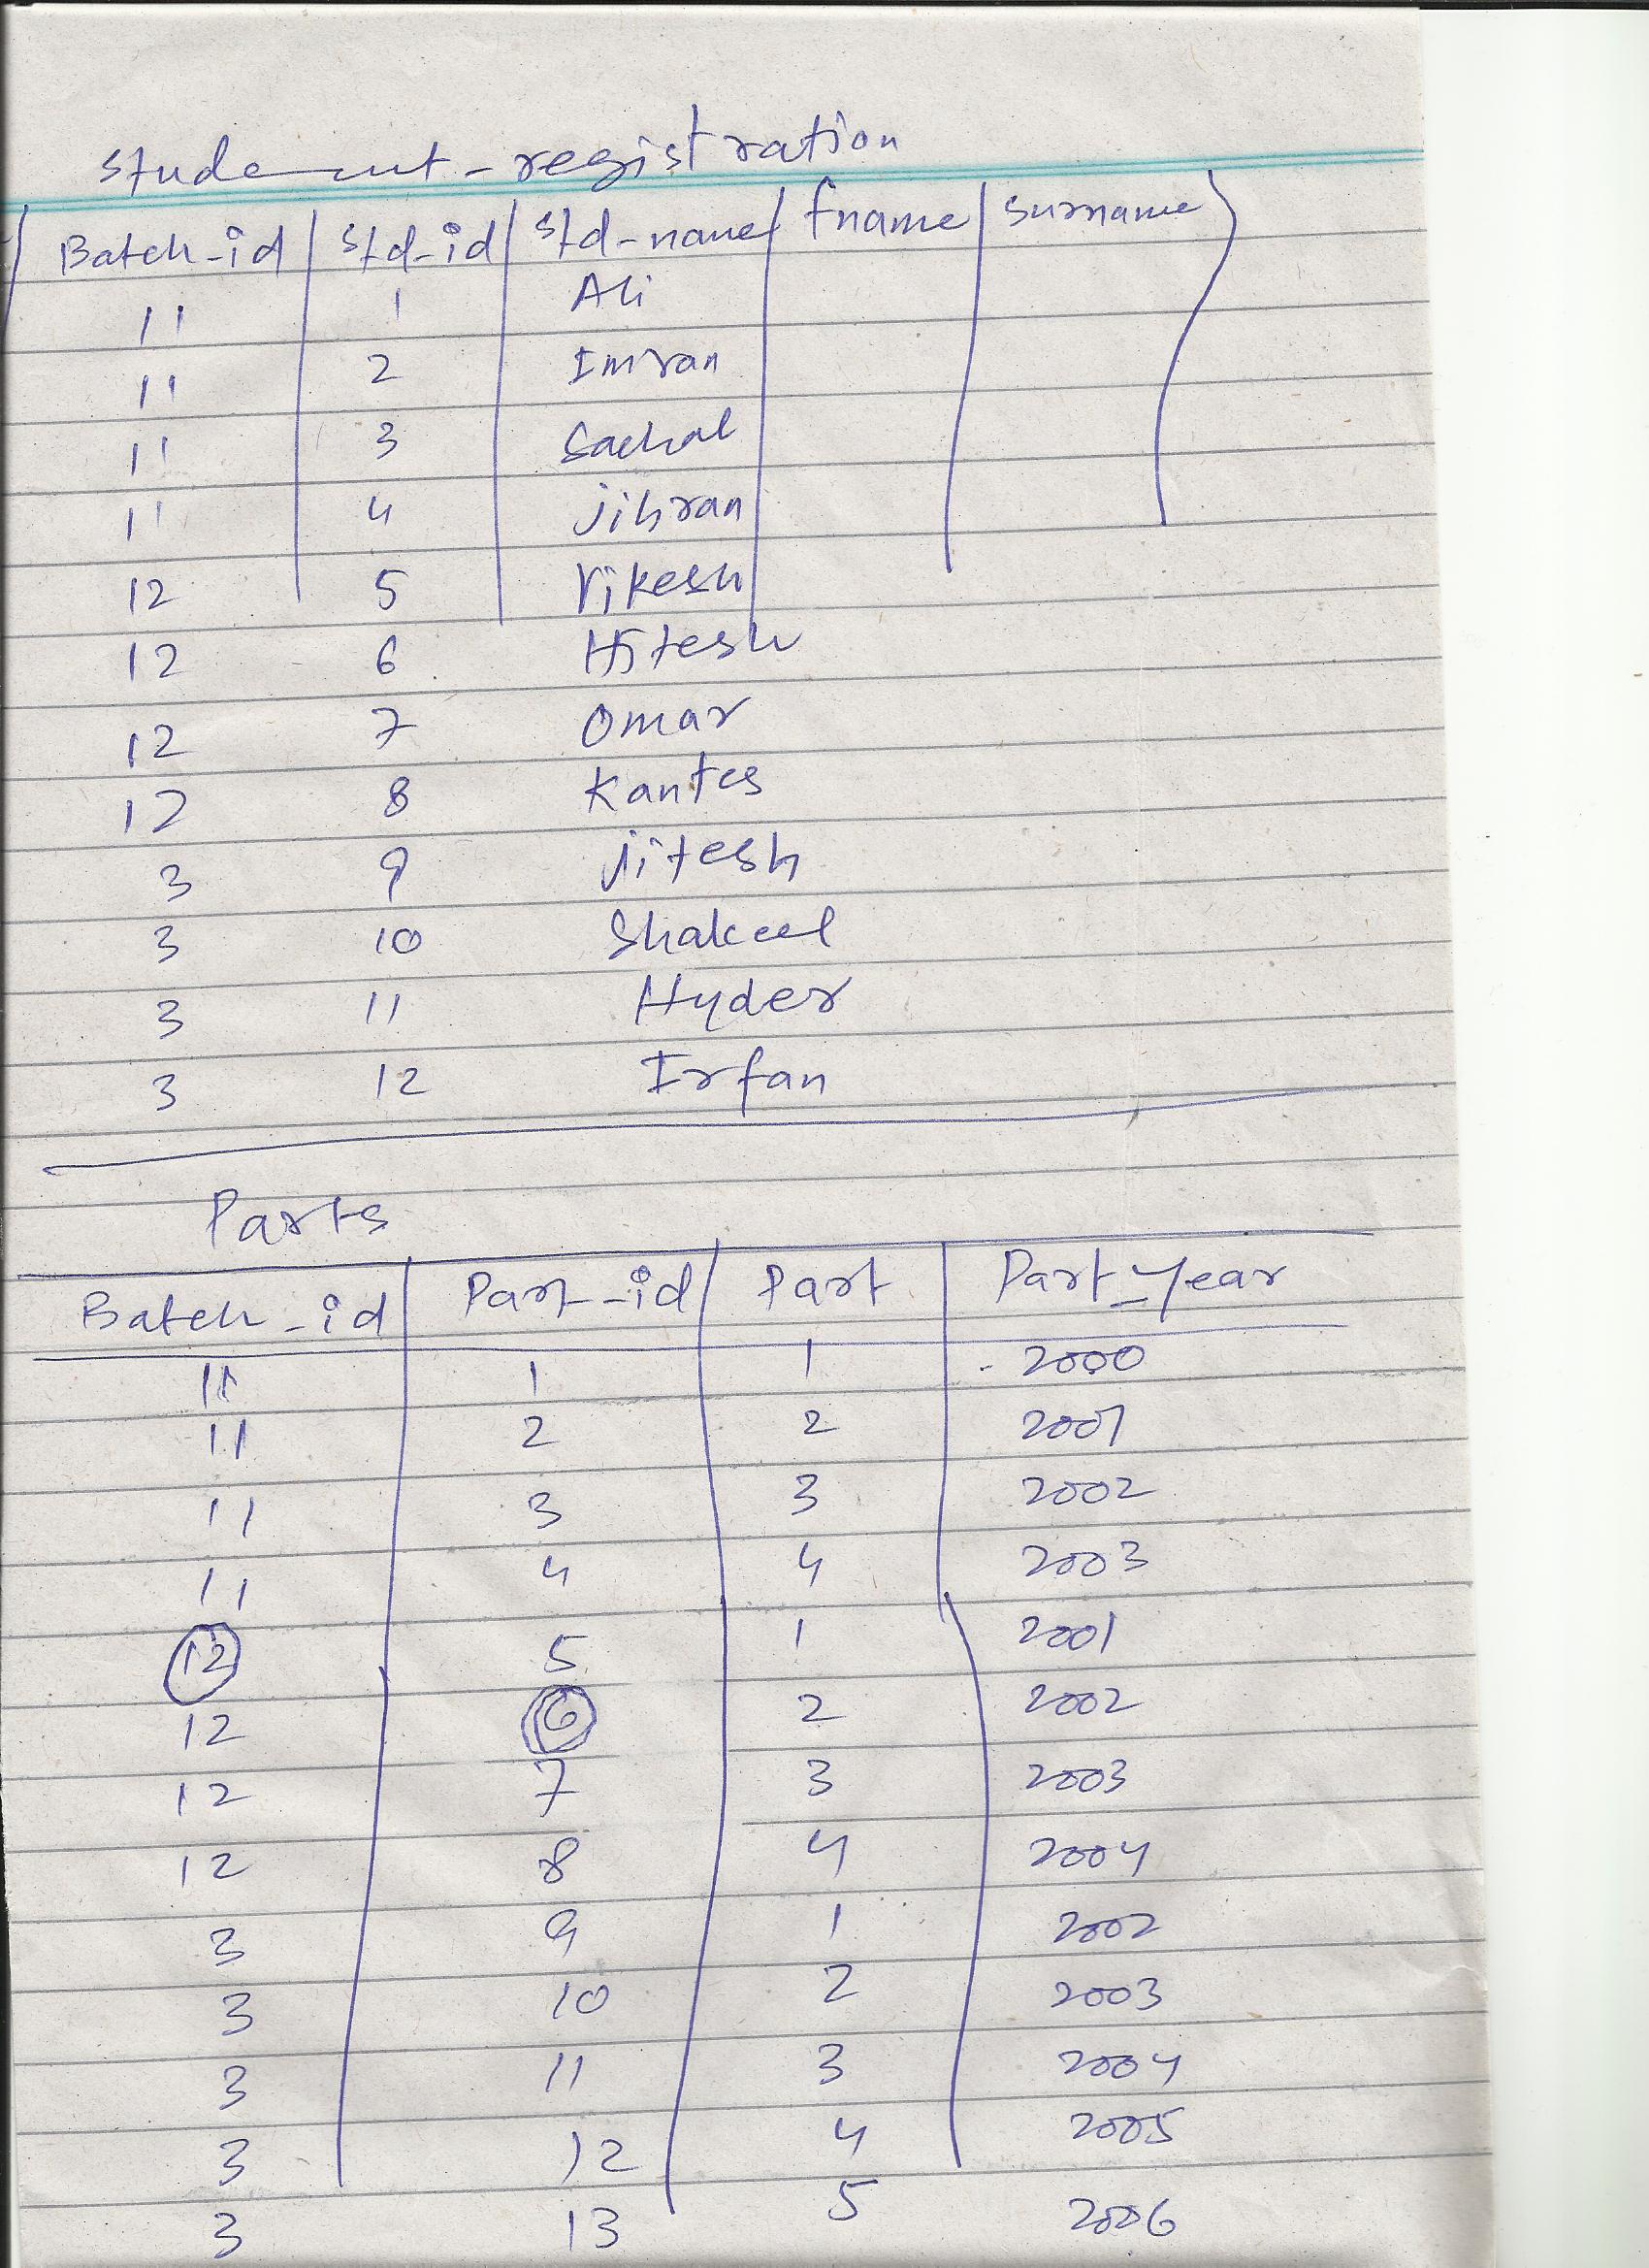 student-registration
Batch-id std-id std-name fname surname
11 1 Ali
11 2 Imran
11 3 Sachal
11 4 jibran
12 5 Vikesh
12 6 Hitesh
12 7 Omar
12 8 Kantes
3 9 jitesh
3 10 Shakeel
3 11 Hyder
3 12 Irfan
Parts
Batch-id Part-id Part Part_year
11 1 1 2000
11 2 2 2001
11 3 3 2002
11 4 4 2003
12 5 1 2001
12 6 2 2002
12 7 3 2003
12 8 4 2004
3 9 1 2002
3 10 2 2003
3 11 3 2004
3 12 4 2005
3 13 5 2006